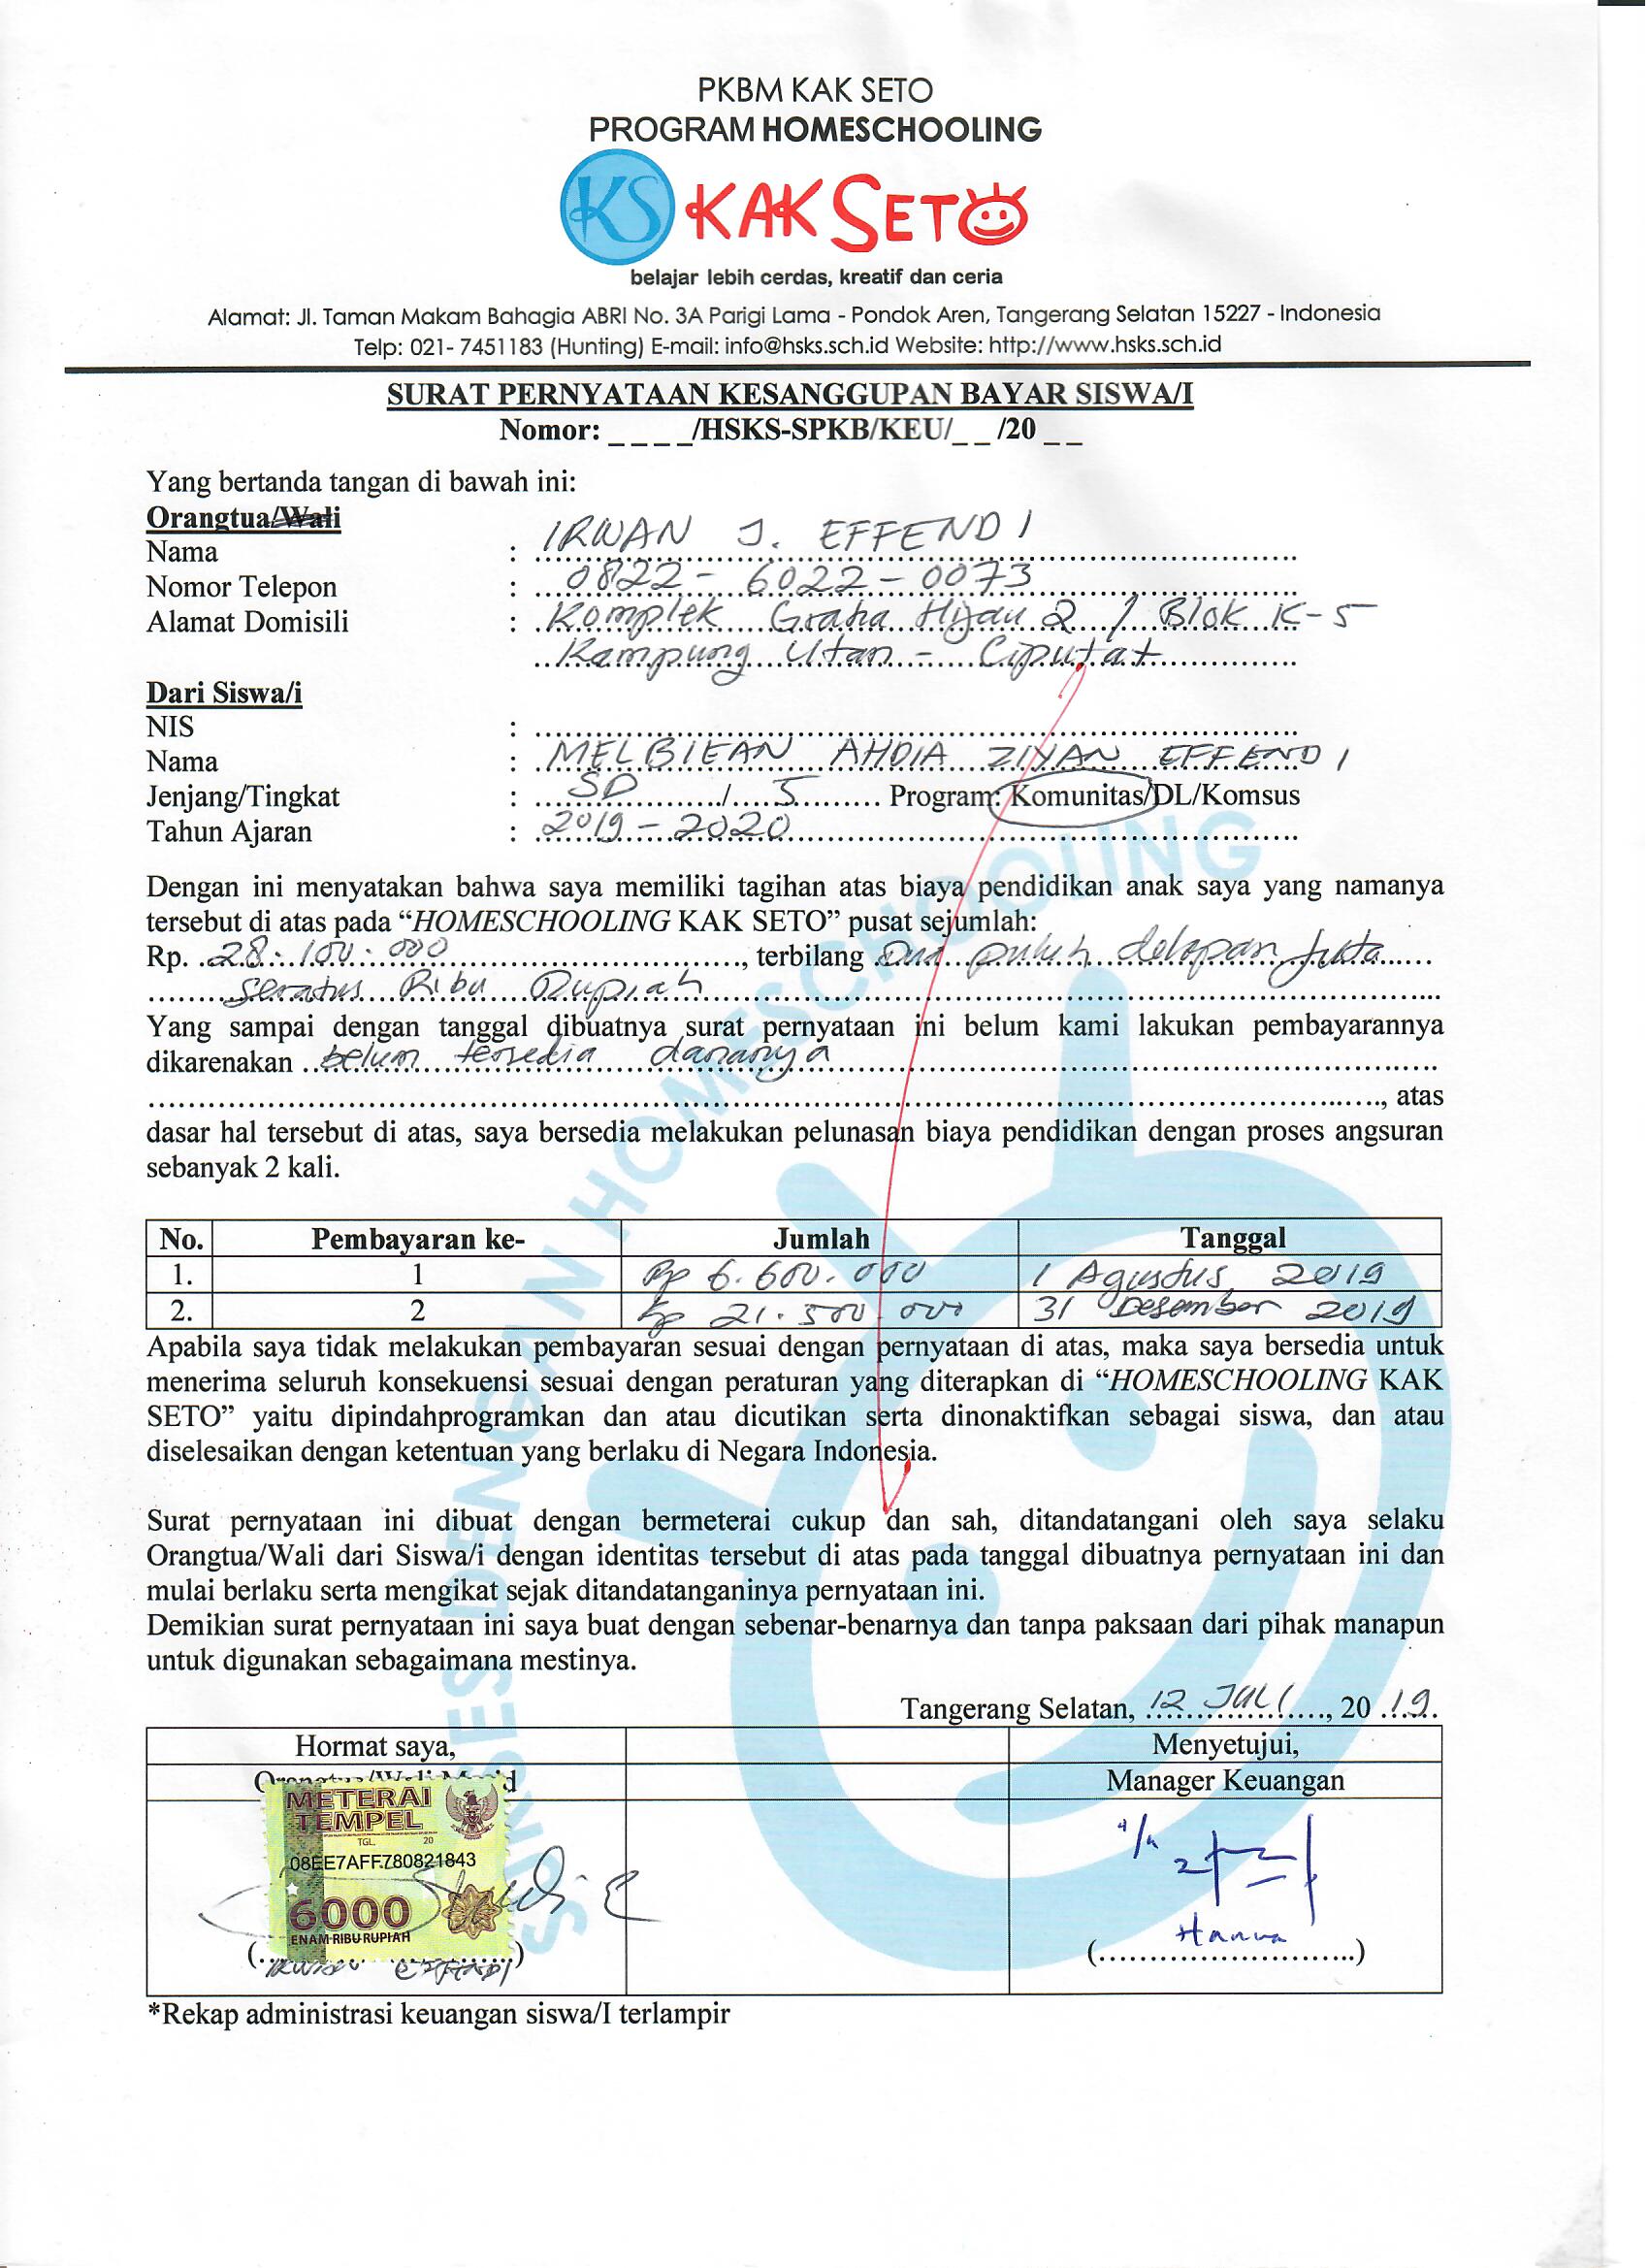 PKBM KAK SETO
PROGRAM HOMESCHOOLING
KS KAK SETO
belajar lebih cerdas, kreatif dan ceria
Alamat: Jl. Taman Makam Bahagia ABRI No. 3A Parigi Lama - Pondok Aren, Tangerang Selatan 15227 - Indonesia
Telp: 021- 7451183 (Hunting) E-mail: info@hsks.sch.id Website: http://www.hsks.sch.id
SURAT PERNYATAAN KESANGGUPAN BAYAR SISWA/I
Nomor: _ _ _ _/HSKS-SPKB/KEU/_ _ /20 _ _
Yang bertanda tangan di bawah ini:
Orangtua/Wali
Nama : IRWAN J. EFFENDI
Nomor Telepon : 0822 - 6022 - 0073
Alamat Domisili : Komplek Graha Hijau 2 / Blok K-5
Kampung Utan - Ciputat
Dari Siswa/i
NIS :
Nama : MELBIEAN AHDIA ZIYAN EFFENDI
Jenjang/Tingkat : SD / 5 Program: Komunitas/DL/Komsus
Tahun Ajaran : 2019 - 2020
Dengan ini menyatakan bahwa saya memiliki tagihan atas biaya pendidikan anak saya yang namanya
tersebut di atas pada “HOMESCHOOLING KAK SETO” pusat sejumlah:
Rp. 28.100.000, terbilang Dua puluh delapan juta
seratus Ribu Rupiah
Yang sampai dengan tanggal dibuatnya surat pernyataan ini belum kami lakukan pembayarannya
dikarenakan belum tersedia dananya
, atas
dasar hal tersebut di atas, saya bersedia melakukan pelunasan biaya pendidikan dengan proses angsuran
sebanyak 2 kali.
No. Pembayaran ke- Jumlah Tanggal
1. 1 Rp 6.600.000 1 Agustus 2019
2. 2 Rp 21.500.000 31 Desember 2019
Apabila saya tidak melakukan pembayaran sesuai dengan pernyataan di atas, maka saya bersedia untuk
menerima seluruh konsekuensi sesuai dengan peraturan yang diterapkan di “HOMESCHOOLING KAK
SETO” yaitu dipindahprogramkan dan atau dicutikan serta dinonaktifkan sebagai siswa, dan atau
diselesaikan dengan ketentuan yang berlaku di Negara Indonesia.
Surat pernyataan ini dibuat dengan bermeterai cukup dan sah, ditandatangani oleh saya selaku
Orangtua/Wali dari Siswa/i dengan identitas tersebut di atas pada tanggal dibuatnya pernyataan ini dan
mulai berlaku serta mengikat sejak ditandatanganinya pernyataan ini.
Demikian surat pernyataan ini saya buat dengan sebenar-benarnya dan tanpa paksaan dari pihak manapun
untuk digunakan sebagaimana mestinya.
Tangerang Selatan, 12 JULI, 20 19.
Hormat saya, Menyetujui,
Orangtua/Wali Murid Manager Keuangan
METERAI
TEMPEL
TGL. 20
08EE7AFF780821843
6000
ENAM RIBU RUPIAH
(IRWAN EFFENDI) Hanna
*Rekap administrasi keuangan siswa/I terlampir
SUKSES DENGAN HOMESCHOOLING